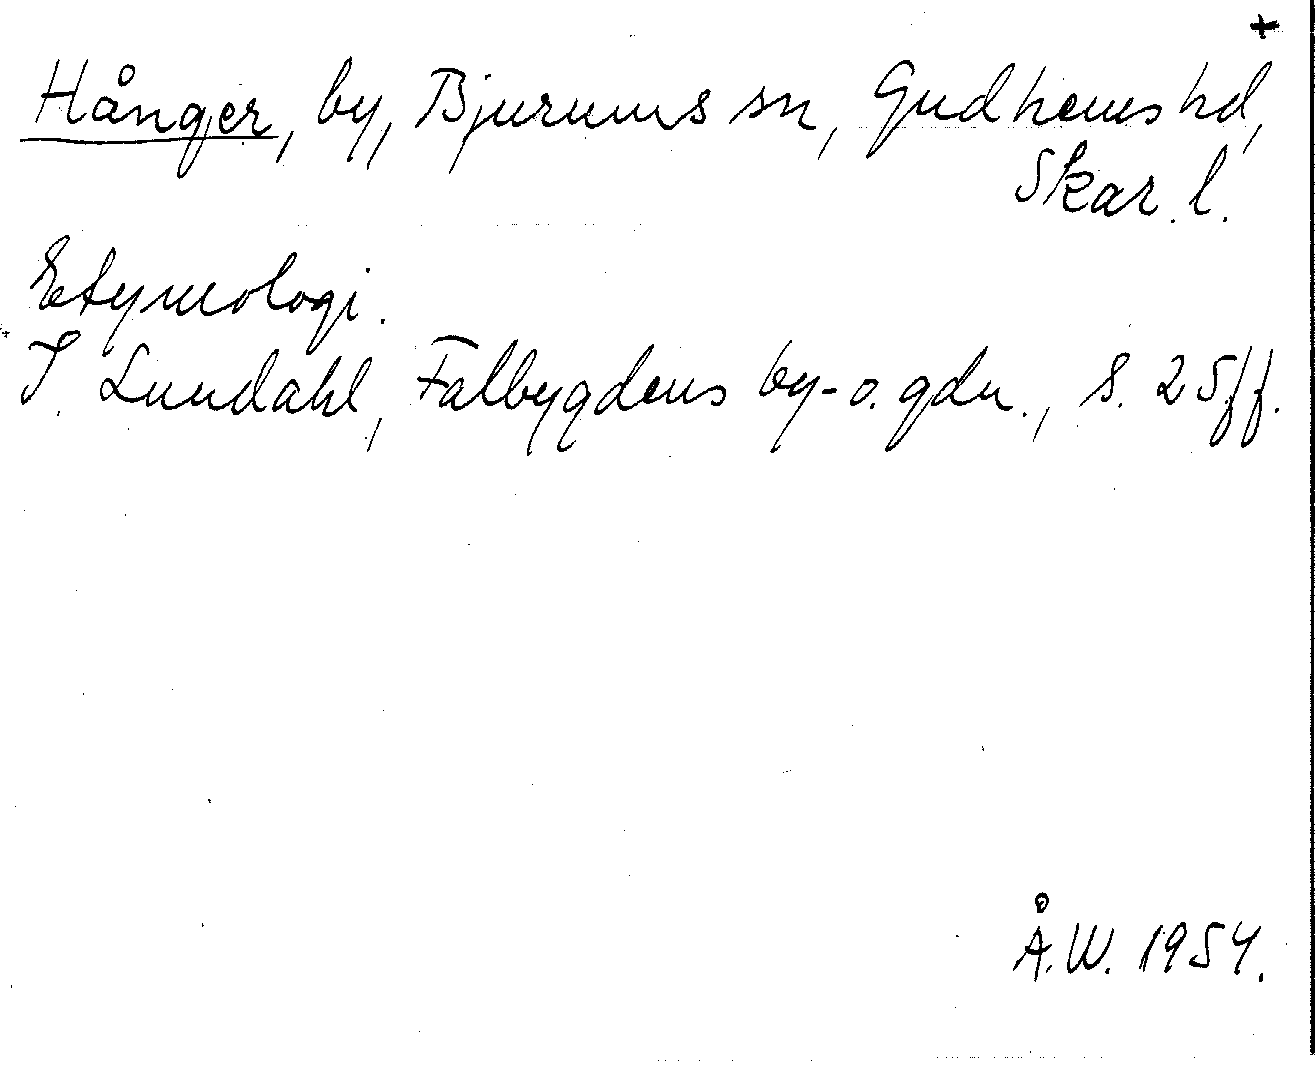 +
Hånger, by, Bjurums sn, Gudhems hd,
Skar. l.
Etymologi.
I. Lundahl, Falbygdens by- o. gdn., s. 25ff.
Å.W. 1954.